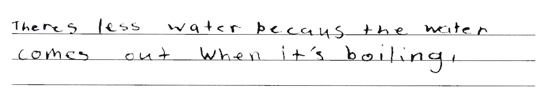 Theres less water becaus the water
comes out when it's boiling.